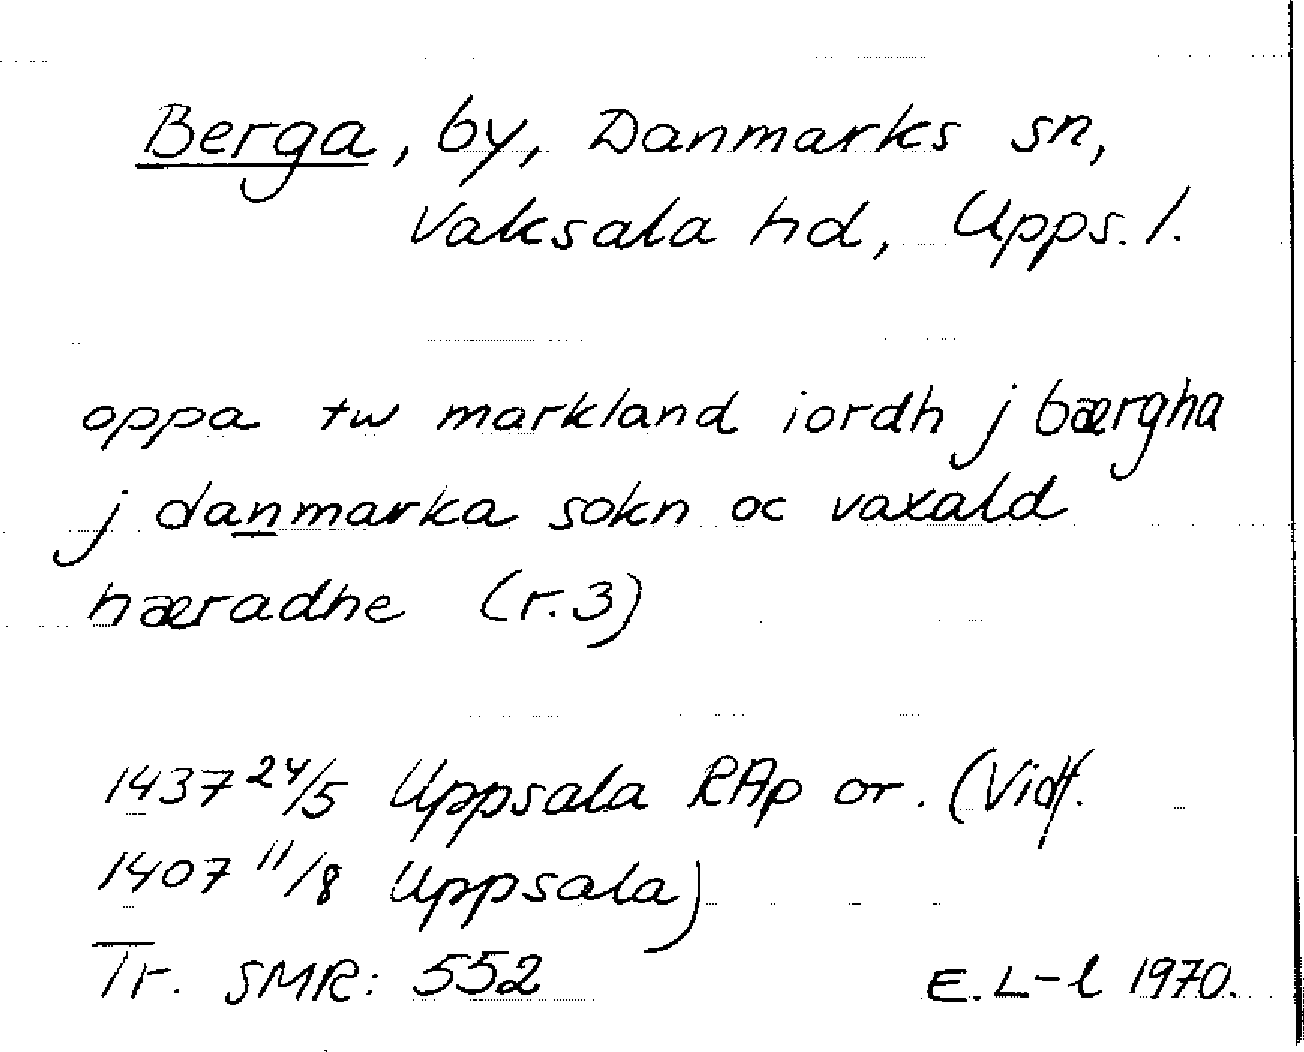 Berga, by, Danmarks sn,
Vaksala hd, Upps. l.
oppa tw markland iordh j bærgha
j danmarka sokn oc vaxald
hæradhe (r.3)
1437 24/5 Uppsala RAp or. (Vidf.
1407 11/8 Uppsala)
Tr. SMR: 552
E. L-l 1970.